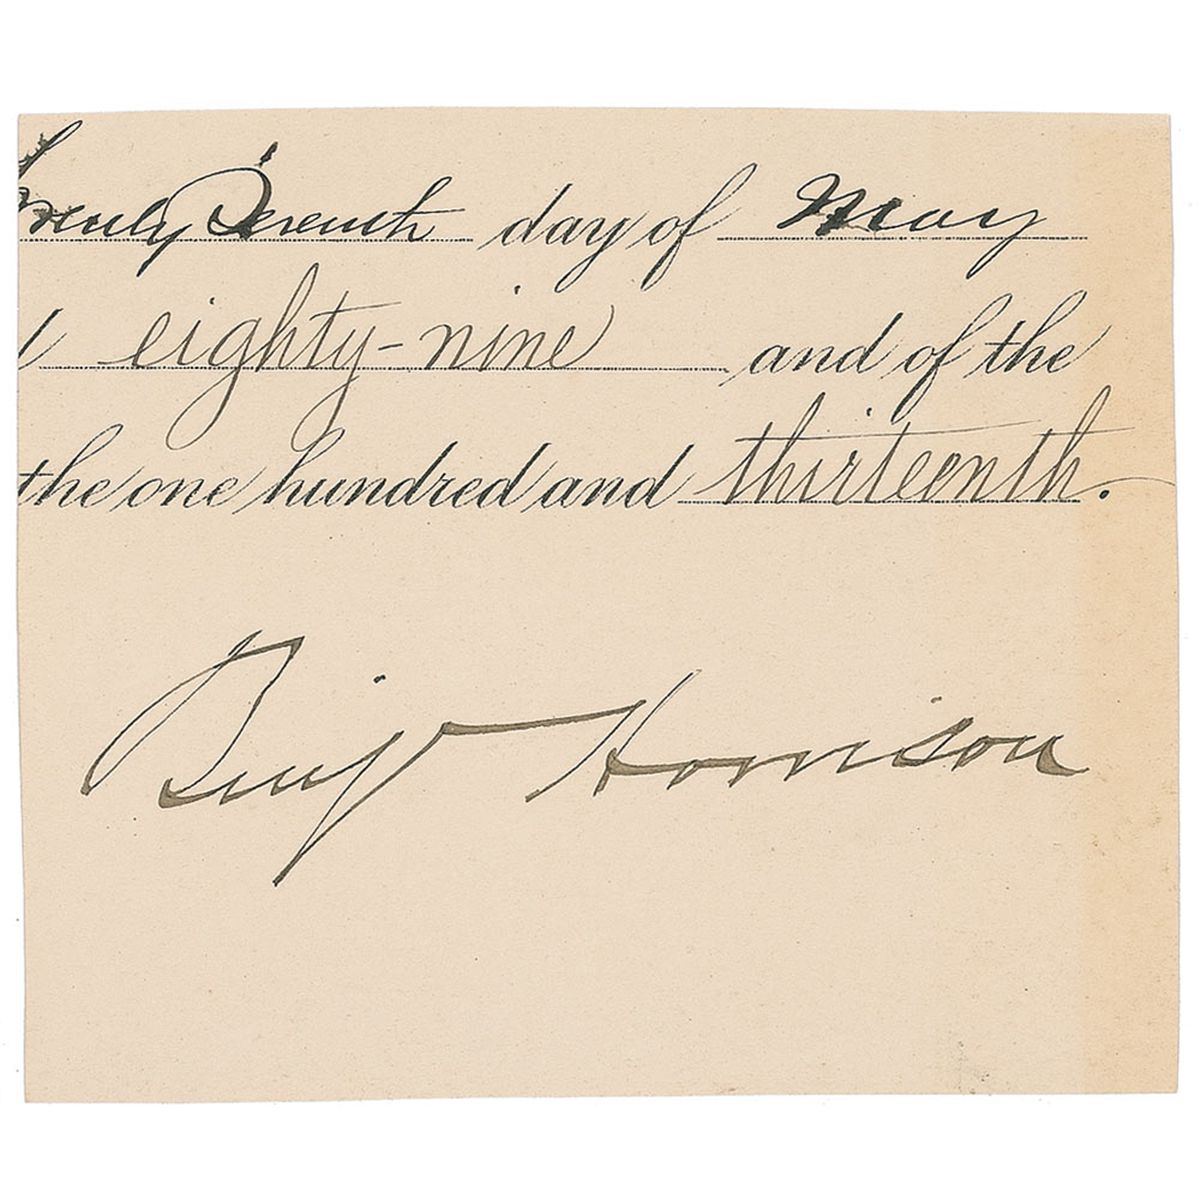 Twenty Seventh day of May
eighty-nine and of the
the one hundred and thirteenth.
Benj Harrison